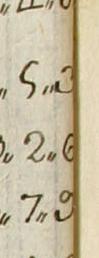 „ 5„3
„ 2„6
„ 7„9